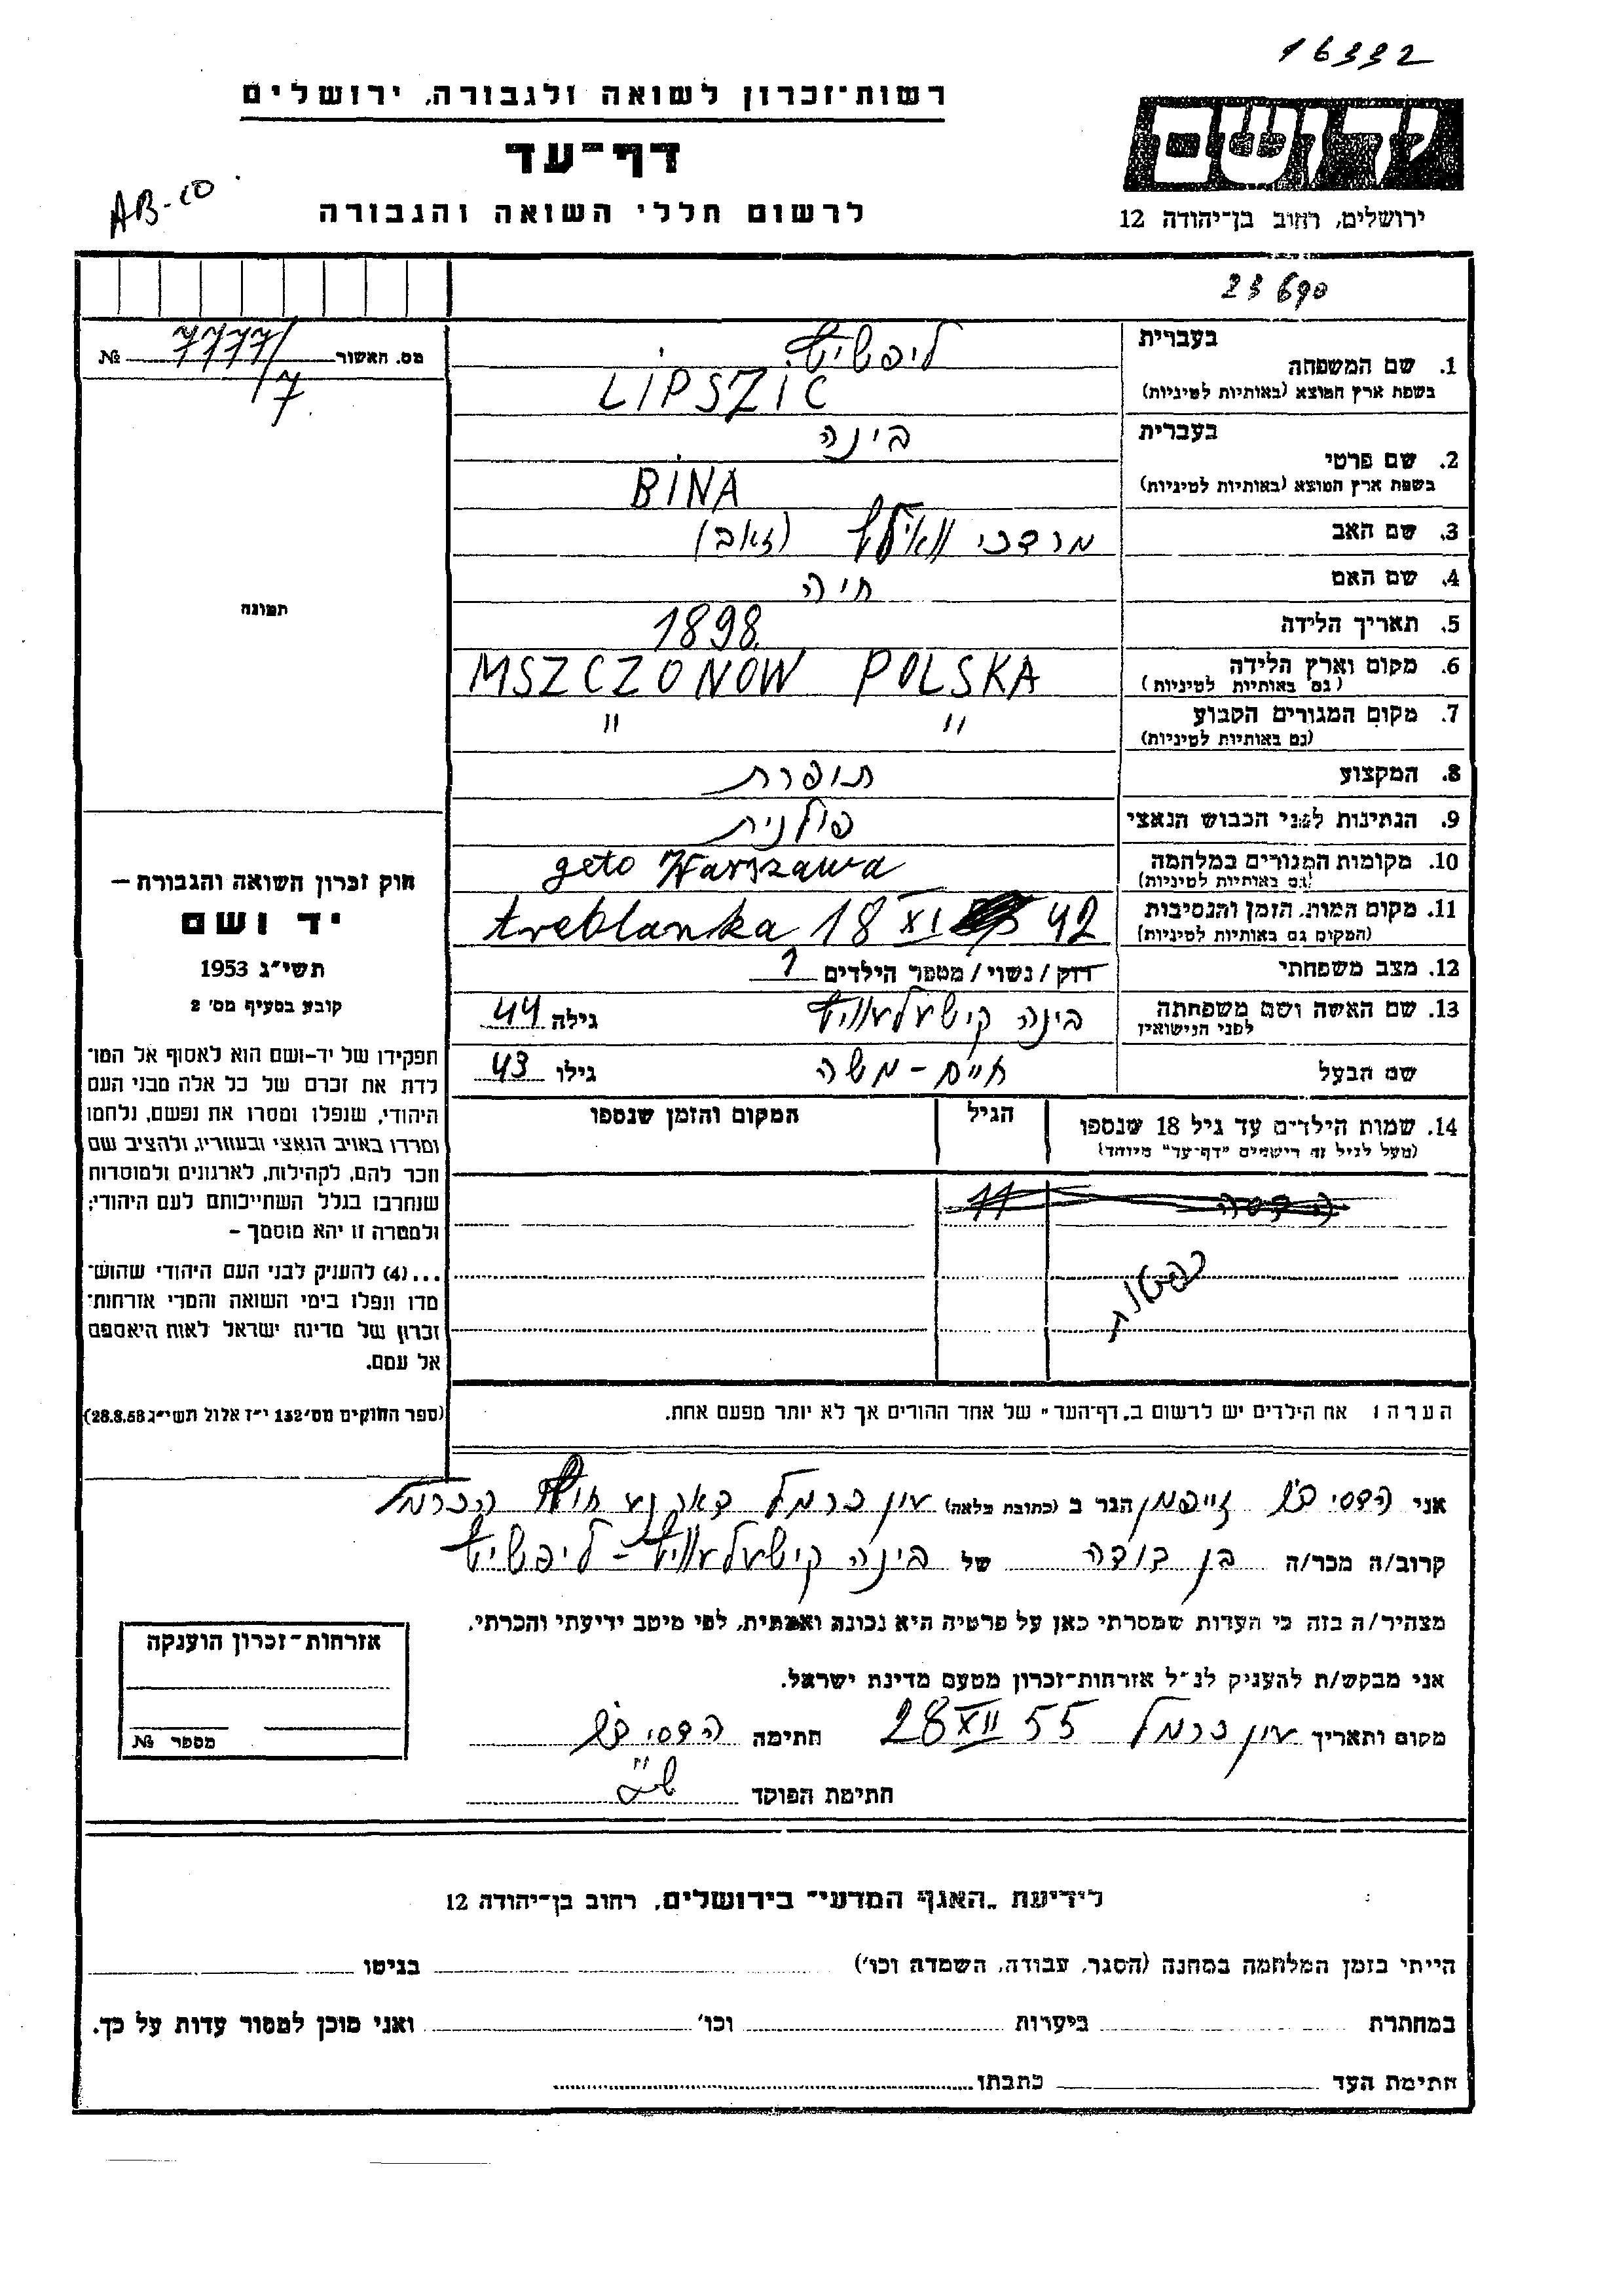 16332
רשות־זכרון לשואה ולגבורה, ירושלים
דף־עד
לרשום חללי השואה והגבורה
AB-10
ירושלים, רחוב בן־יהודה 12
23690
מס. האשור 7777/17 №
בעברית ליפשיץ
1. שם המשפחה
בשפת ארץ המוצא (באותיות לטיניות) LIPSZIC
בעברית בינה
2. שם פרטי
בשפת ארץ המוצא (באותיות לטיניות) BINA
3. שם האב מרדכי (זאב)
4. שם האם חיה
5. תאריך הלידה 1898
6. מקום וארץ הלידה MSZCZONOW POLSKA
(גם באותיות לטיניות)
7. מקום המגורים הקבוע " "
(גם באותיות לטיניות)
8. המקצוע תופרת
9. הנתינות לפני הכבוש הנאצי פולנית
10. מקומות המגורים במלחמה geto Warszawa
(גם באותיות לטיניות)
11. מקום המות, הזמן והנסיבות treblanka 18 XI 42
(המקום גם באותיות לטיניות)
12. מצב משפחתי רווק/נשוי/מספר הילדים 1
13. שם האשה ושם משפחתה בינה קישעלעוויץ גילה 44
לפני הנישואין
שם הבעל חיים - משה גילו 43
14. שמות הילדים עד גיל 18 שנספו הגיל המקום והזמן שנספו
(מעל לגיל זה רישמים "דף־עד" מיוחד)
הדסה 11
תמונה
חוק זכרון השואה והגבורה —
יד ושם
תשי"ג 1953
קובע בסעיף מס' 2
תפקידו של יד-ושם הוא לאסוף אל המו־
לדת את זכרם של כל אלה מבני העם
היהודי, שנפלו ומסרו את נפשם, נלחמו
ומרדו באויב הנאצי ובעוזריו, ולהציב שם
וזכר להם, לקהילות, לארגונים ולמוסדות
שנחרבו בגלל השתייכותם לעם היהודי;
ולמטרה זו יהא מוסמך -
...(4) להעניק לבני העם היהודי שהוש־
מדו ונפלו בימי השואה והמרי אזרחות־
זכרון של מדינת ישראל לאות היאספם
אל עמם.
(ספר החוקים מס' 132 י"ז אלול תשי"ג 28.8.53)
הערה: את הילדים יש לרשום ב„דף־העד" של אחד ההורים אך לא יותר מפעם אחת.
אני זייפמן הגר ב (כתובת מלאה) עון כרמל דאר נע חוף הכרמל
קרוב/ה מכר/ה בן דודה של בינה קישעלעוויץ - ליפשיץ
מצהיר/ה בזה כי העדות שמסרתי כאן על פרטיה היא נכונה ואמתית, לפי מיטב ידיעתי והכרתי.
אני מבקש/ת להעניק לנ"ל אזרחות־זכרון מטעם מדינת ישראל.
מקום ותאריך עון כרמל 28 XII 55 חתימה
חתימת הפוקד
אזרחות־זכרון הוענקה
מספר №
לידיעת „האגף המדעי" בירושלים, רחוב בן־יהודה 12
הייתי בזמן המלחמה במחנה (הסגר, עבודה, השמדה וכו') בגיטו
במחתרת ביערות וכו' ואני מוכן למסור עדות על כך.
חתימת העד כתבתו